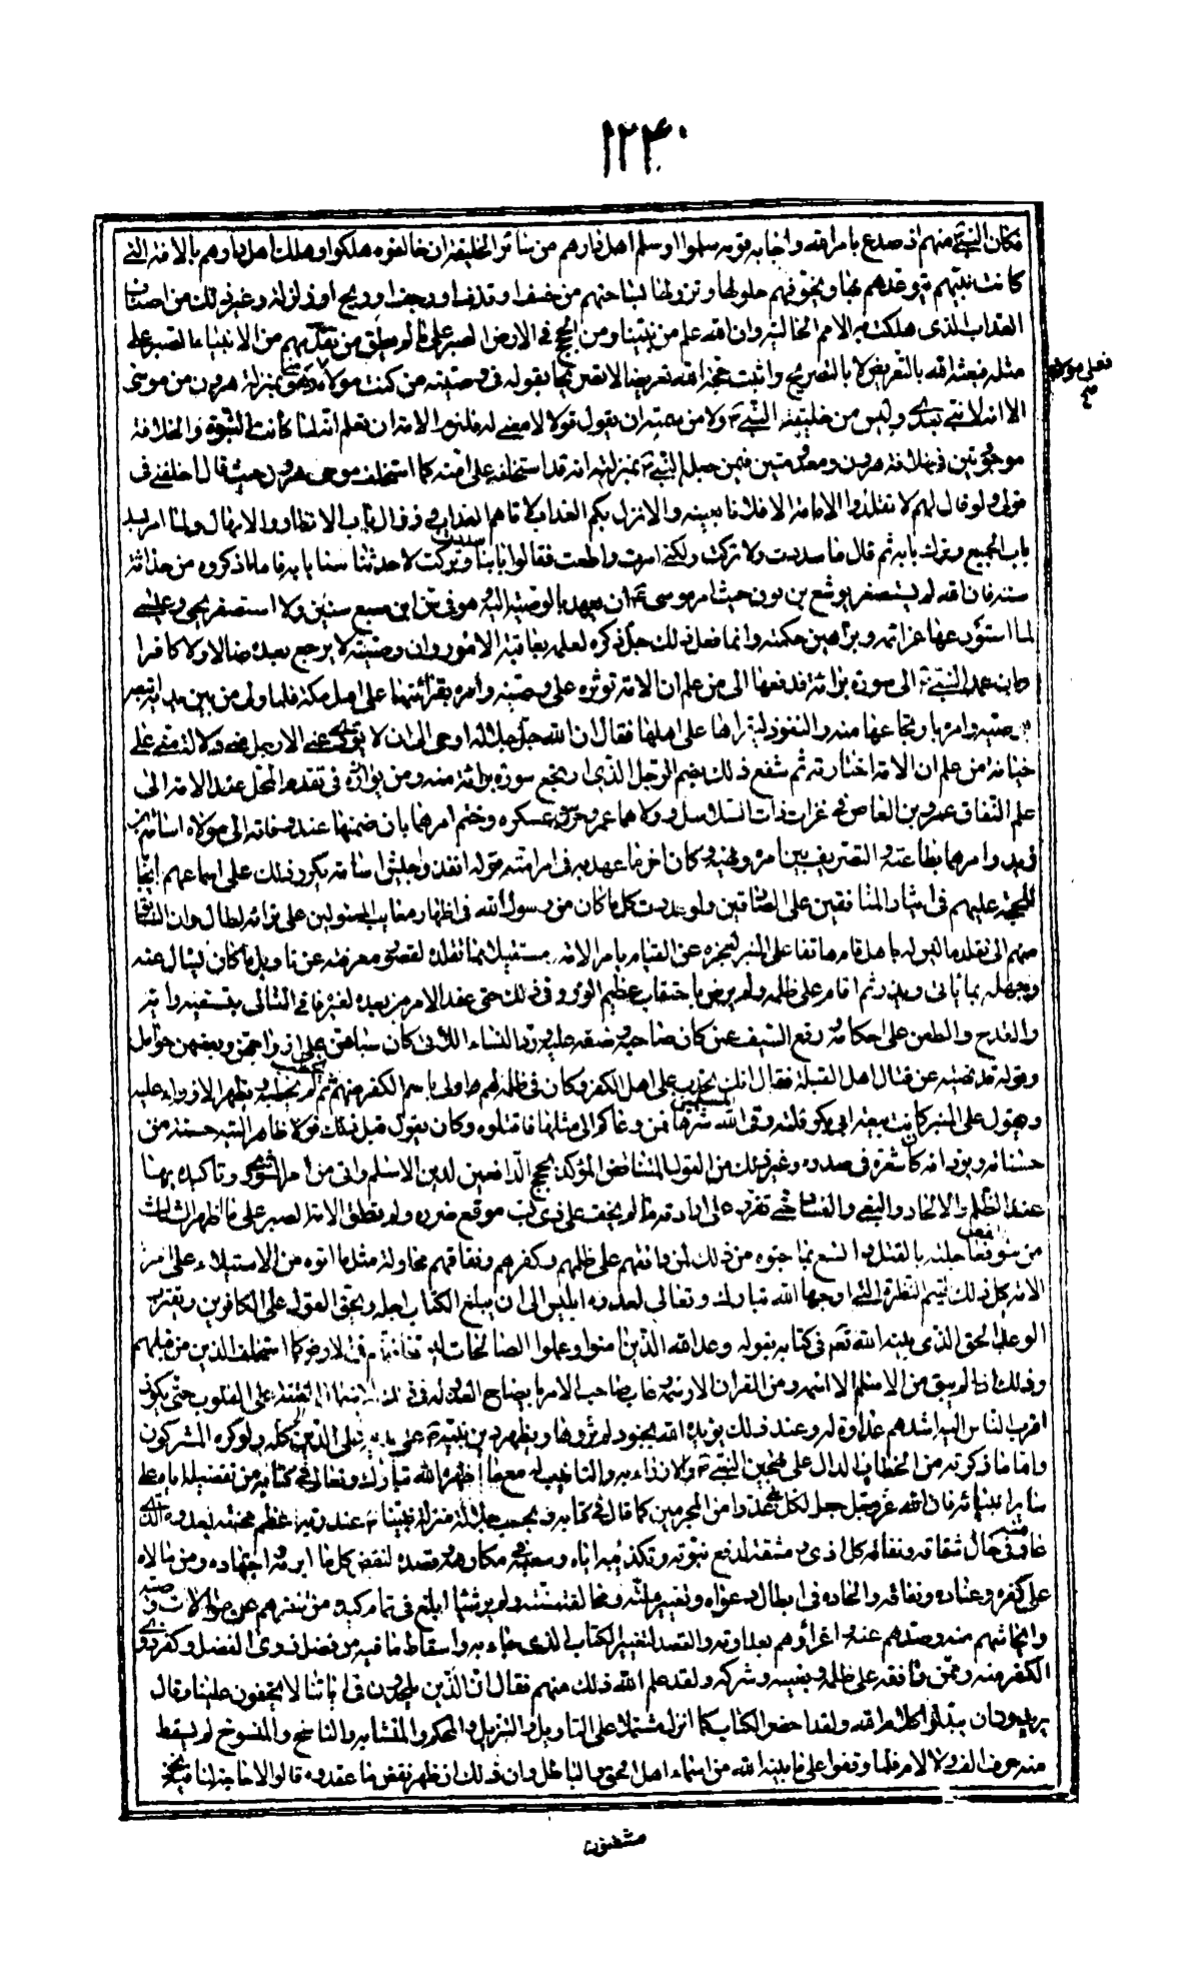 ١٢٣٠
فكان النبي منهم اذ صدع بامر الله واجابه قومه سلموا وسلم اهل دارهم من سائر الخليقة وان خالفوه هلكوا وهلك اهل دارهم بالافة التي
كانت نبيهم يتوعدهم بها ويخوفهم حلولها ونزولها بساحتهم من خسف او قذف او رجف او ريح او زلزلة وغير ذلك من اصناف
العذاب الذي هلكت به الامم الخالية وان الله علم من نبينا ومن الحجج في الارض الصبر على ما لم يطق من تقدمهم من الانبياء الصبر على
مثله فبعثه الله بالتعريض لا بالتصريح واثبت حجة الله تعريضا لا تصريحا بقوله في وصيته من كنت مولاه وهو بمنزلة هرون من موسى
فعلي مولاه
الا انه لا نبي بعدي وليس من خليقة النبي ولا من شيمته ان يقول قولا لا معنى له فلزم الامة ان تعلم انه لما كانت النبوة والخلافة
موجودتين في خلافة هرون ومعدومتين فيمن جعله النبي بمنزلته انه قد استخلفه على امته كما استخلف موسى هرون حيث قال اخلفني في
قومي ولو قال لهم لا تقلدوا الامامة الا فلانا بعينه والا نزل بكم العذاب لاتاهم العذاب وزال باب الانظار والامهال ولما امر بسد
باب الجميع وترك بابه ثم قال ما سددت ولا تركت ولكني امرت واطعت فقالوا سددت بابنا وتركت لاحدثنا سنا بابه فاما ما ذكروه من حداثة
سنه فان الله لم يستصغر يوشع بن نون حيث امر موسى ان يعهد بالوصية اليه وهو في سن ابن سبع سنين ولا استصغر يحيى وعيسى
لما استودعهما عزائمه وبراهين حكمته وانما فعل ذلك جل ذكره لعلمه بعاقبة الامور وان وصيته لا يرجع بعده ضالا ولا كافرا
عمد النبي الى سورة براءة فدفعها الى من علم ان الامة تؤثره على وصيته وامره بقراءتها على اهل مكة فلما ولى من بين يديه اتبعه
بوصيه وامره بارتجاعها منه والنفوذ ليقراها على اهلها فقال ان الله جل جلاله اوحى الي ان لا يؤدي عني الا رجل مني دلالة منه على
خيانة من علم ان الامة اختارته ثم شفع ذلك بضم الرجل الذي ارتجع سورة براءة منه ومن يوازره في تقدم المحل عند الامة الى
علم النفاق عمرو بن العاص في غزات ذات السلاسل وولاهما عمرو حرس عسكره وختم امرهما بان ضمهما عند وفاته الى مولاه اسامة بن
زيد وامرهما بطاعته والتصريف بين امره ونهيه وكان اخر ما عهد به في امر امته قوله انفذوا جيش اسامة يكرر ذلك على اسماعهم ايجابا
للحجة عليهم في ايثار المنافقين على الصادقين ولو عددت كل ما كان من رسول الله في اظهار معايب المستولين على تراثه لطال وان السابق
منهم الى تقلد ما ليس له باهل قام هاتفا على المنبر لعجزه عن القيام بامر الامة مستقيلا مما تقلده لقصور معرفته عن تاويل ما كان يسال عنه
وجهله بما ياتي ويذر ثم اقام على ظلمه ولم يرض باحتقاب عظيم الوزر في ذلك حتى عقد الامر من بعده لغيره فاتى التالي بتسفيه رايه
والقدح والطعن على احكامه ورفع السيف عمن كان صاحبه وضعه عليه ورد النساء اللاتي كان سباهن على ازواجهن وبعضهن حوامل
وقوله قد نهيته عن قتال اهل القبلة فقال انك لحدب على اهل الكفر وكان في ظلمه لهم اولى باسم الكفر منهم ثم لم يزل يخطئه ويظهر الازراء عليه
ويقول على المنبر كانت بيعة ابي بكر فلتة وقى الله المسلمين شرها فمن دعاكم الى مثلها فاقتلوه وكان يقول قبل ذلك قولا ظاهرا ليته حسنة من
حسناته ويود انه كان شعرة في صدره وغير ذلك من القول المتناقض المؤكد لحجج الدافعين لدين الاسلام واتى من امر الشورى وتاكيده بها
عقد الظلم والالحاد والبغي والفساد حتى تقرر على ارادته ما لم يخف على ذي لب موقع ضرره ولم تطق الامة الصبر على ما اظهره الثالث
من سوء الفعل فعاجلته بالقتل فاتسع بما جنوه من ذلك لمن وافقهم على ظلمهم وكفرهم ونفاقهم محاولة مثل ما اتوه من الاستيلاء على امر
الامة كل ذلك لتتم النظرة التي اوجبها الله تبارك وتعالى لعدوه ابليس الى ان يبلغ الكتاب اجله ويحق القول على الكافرين ويقترب
الوعد الحق الذي بينه الله تعالى في كتابه بقوله وعد الله الذين امنوا وعملوا الصالحات ليستخلفنهم في الارض كما استخلف الذين من قبلهم
وذلك اذا لم يبق من الاسلام الا اسمه ومن القران الا رسمه وغاب صاحب الامر بايضاح العذر له في ذلك لاشتمال الفتنة على القلوب حتى يكون
اقرب الناس اليه اشدهم عداوة له وعند ذلك يؤيده الله بجنود لم تروها ويظهر دين نبيه على يديه على الدين كله ولو كره المشركون
واما ما ذكرته من الخطاب الدال على تهجين النبي والازراء به والتانيب له مع ما اظهره الله تبارك وتعالى في كتابه من تفضيله اياه على
سائر انبيائه فان الله عز وجل جعل لكل نبي عدوا من المجرمين كما قال في كتابه وبحسب جلالة منزلة نبينا عند ربه عظم محنته بعدوه الذي
عاد منه في حال شقاقه ونفاقه كل اذى ومشقة لدفع نبوته وتكذيبه اياه وسعيه في مكارهه وقصده لنقض كل ما ابرمه واجتهاده ومن مالاه
على كفره وعناده ونفاقه والحاده في ابطال دعواه وتغيير ملته ومخالفته سنته ولم ير شيئا ابلغ في تمام كيده من تنفيرهم عن موالات وصيه
وايحاشهم منه وصدهم عنه واغرائهم بعداوته والقصد لتغيير الكتاب الذي جاء به واسقاط ما فيه من فضل ذوي الفضل وكفر ذوي
الكفر منه وممن وافقه على ظلمه وبغيه وشركه ولقد علم الله ذلك منهم فقال ان الذين يلحدون في اياتنا لا يخفون علينا وقال
يريدون ان يبدلوا كلام الله ولقد احضروا الكتاب كملا مشتملا على التاويل والتنزيل والمحكم والمتشابه والناسخ والمنسوخ لم يسقط
منه حرف الف ولا لام فلما وقفوا على ما بينه الله من اسماء اهل الحق والباطل وان ذلك ان ظهر نقض ما عقدوه قالوا لا حاجة لنا فيه نحن
مستغنون